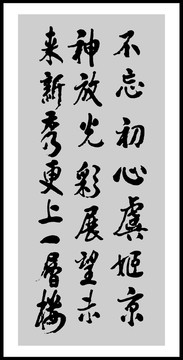 不忘初心虞姬京
神放光彩展望未
来新秀更上一层楼